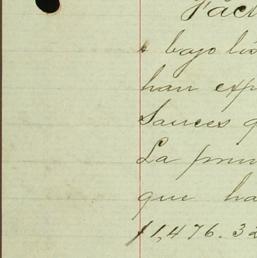 Fac
bajo lis
han exp
Sauces q
La prim
que ha
$1,476.32